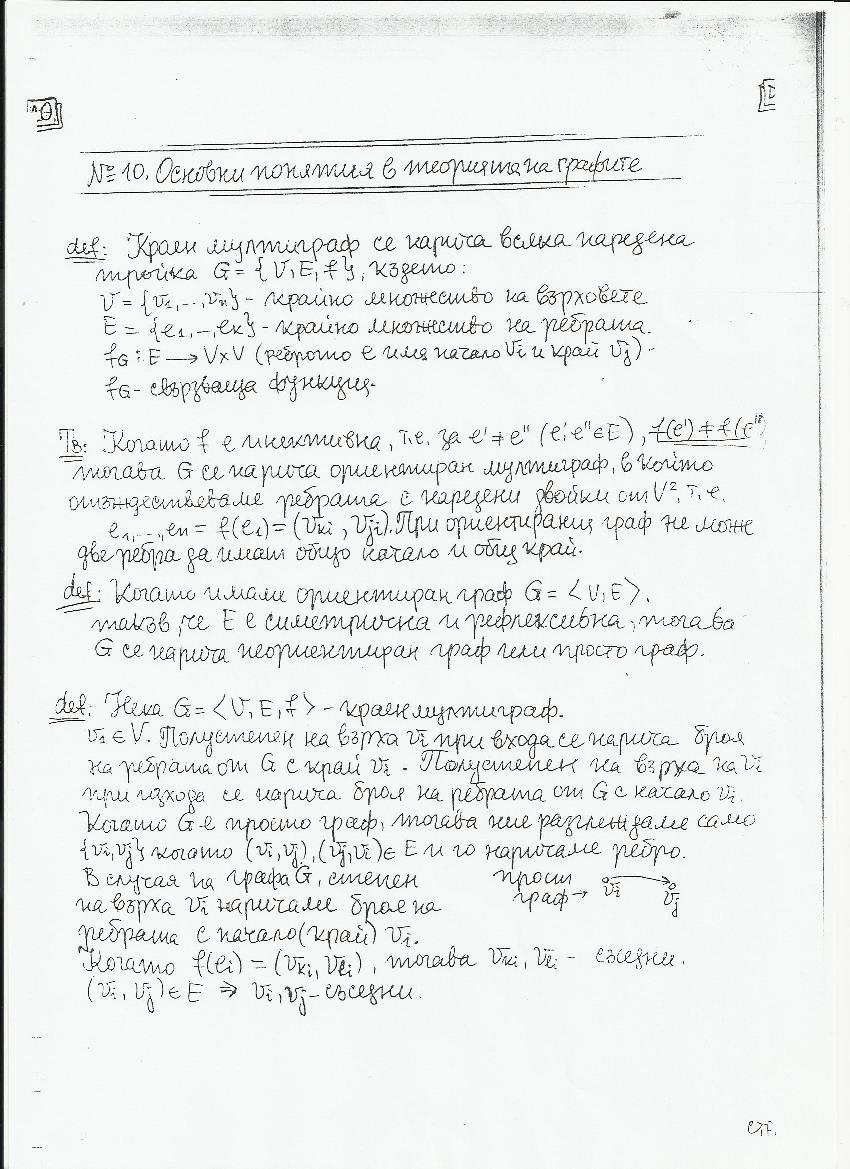 № 10. Основни понятия в теорията на графите
def: Краен мултиграф се нарича всяка наредена
тройка G = {V, E, f}, където:
V = {v1,..,vn} - крайно множество на върховете
E = {e1,..,ek} - крайно множество на ребрата.
fG : E → V×V (реброто е има начало vi и край vj) -
fG - свързваща функция.
Тв: Когато f е инективна, т.е. за e' ≠ e'' (e', e'' ∈ E), f(e') ≠ f(e'')
тогава G се нарича ориентиран мултиграф, в който
отъждествяваме ребрата с наредени двойки от V², т.е.
e1,..,en = f(e1) = (vki, vji). При ориентиращ граф не може
две ребра да имат общо начало и общ край.
def: Когато имаме ориентиран граф G = ⟨V, E⟩,
такъв, че E е симетрична и рефлексивна, тогава
G се нарича неориентиран граф или просто граф.
def: Нека G = ⟨V, E, f⟩ - краен мултиграф.
v1 ∈ V. Полустепен на върха vi при входа се нарича броя
на ребрата от G с край vi. Полустепен на върха на vi
при изхода се нарича броя на ребрата от G с начало vi.
Когато G е просто граф, тогава ние разглеждаме само
{vi, vj} когато (vi, vj), (vj, vi) ∈ E и го наричаме ребро.
В случая на графа G, степен прост vi
на върха vi наричаме броя на граф→ vj
ребрата с начало (край) vi.
Когато f(ei) = (vki, vli), тогава vki, vli - съседни.
(vi, vj) ∈ E ⇒ vi, vj - съседни.